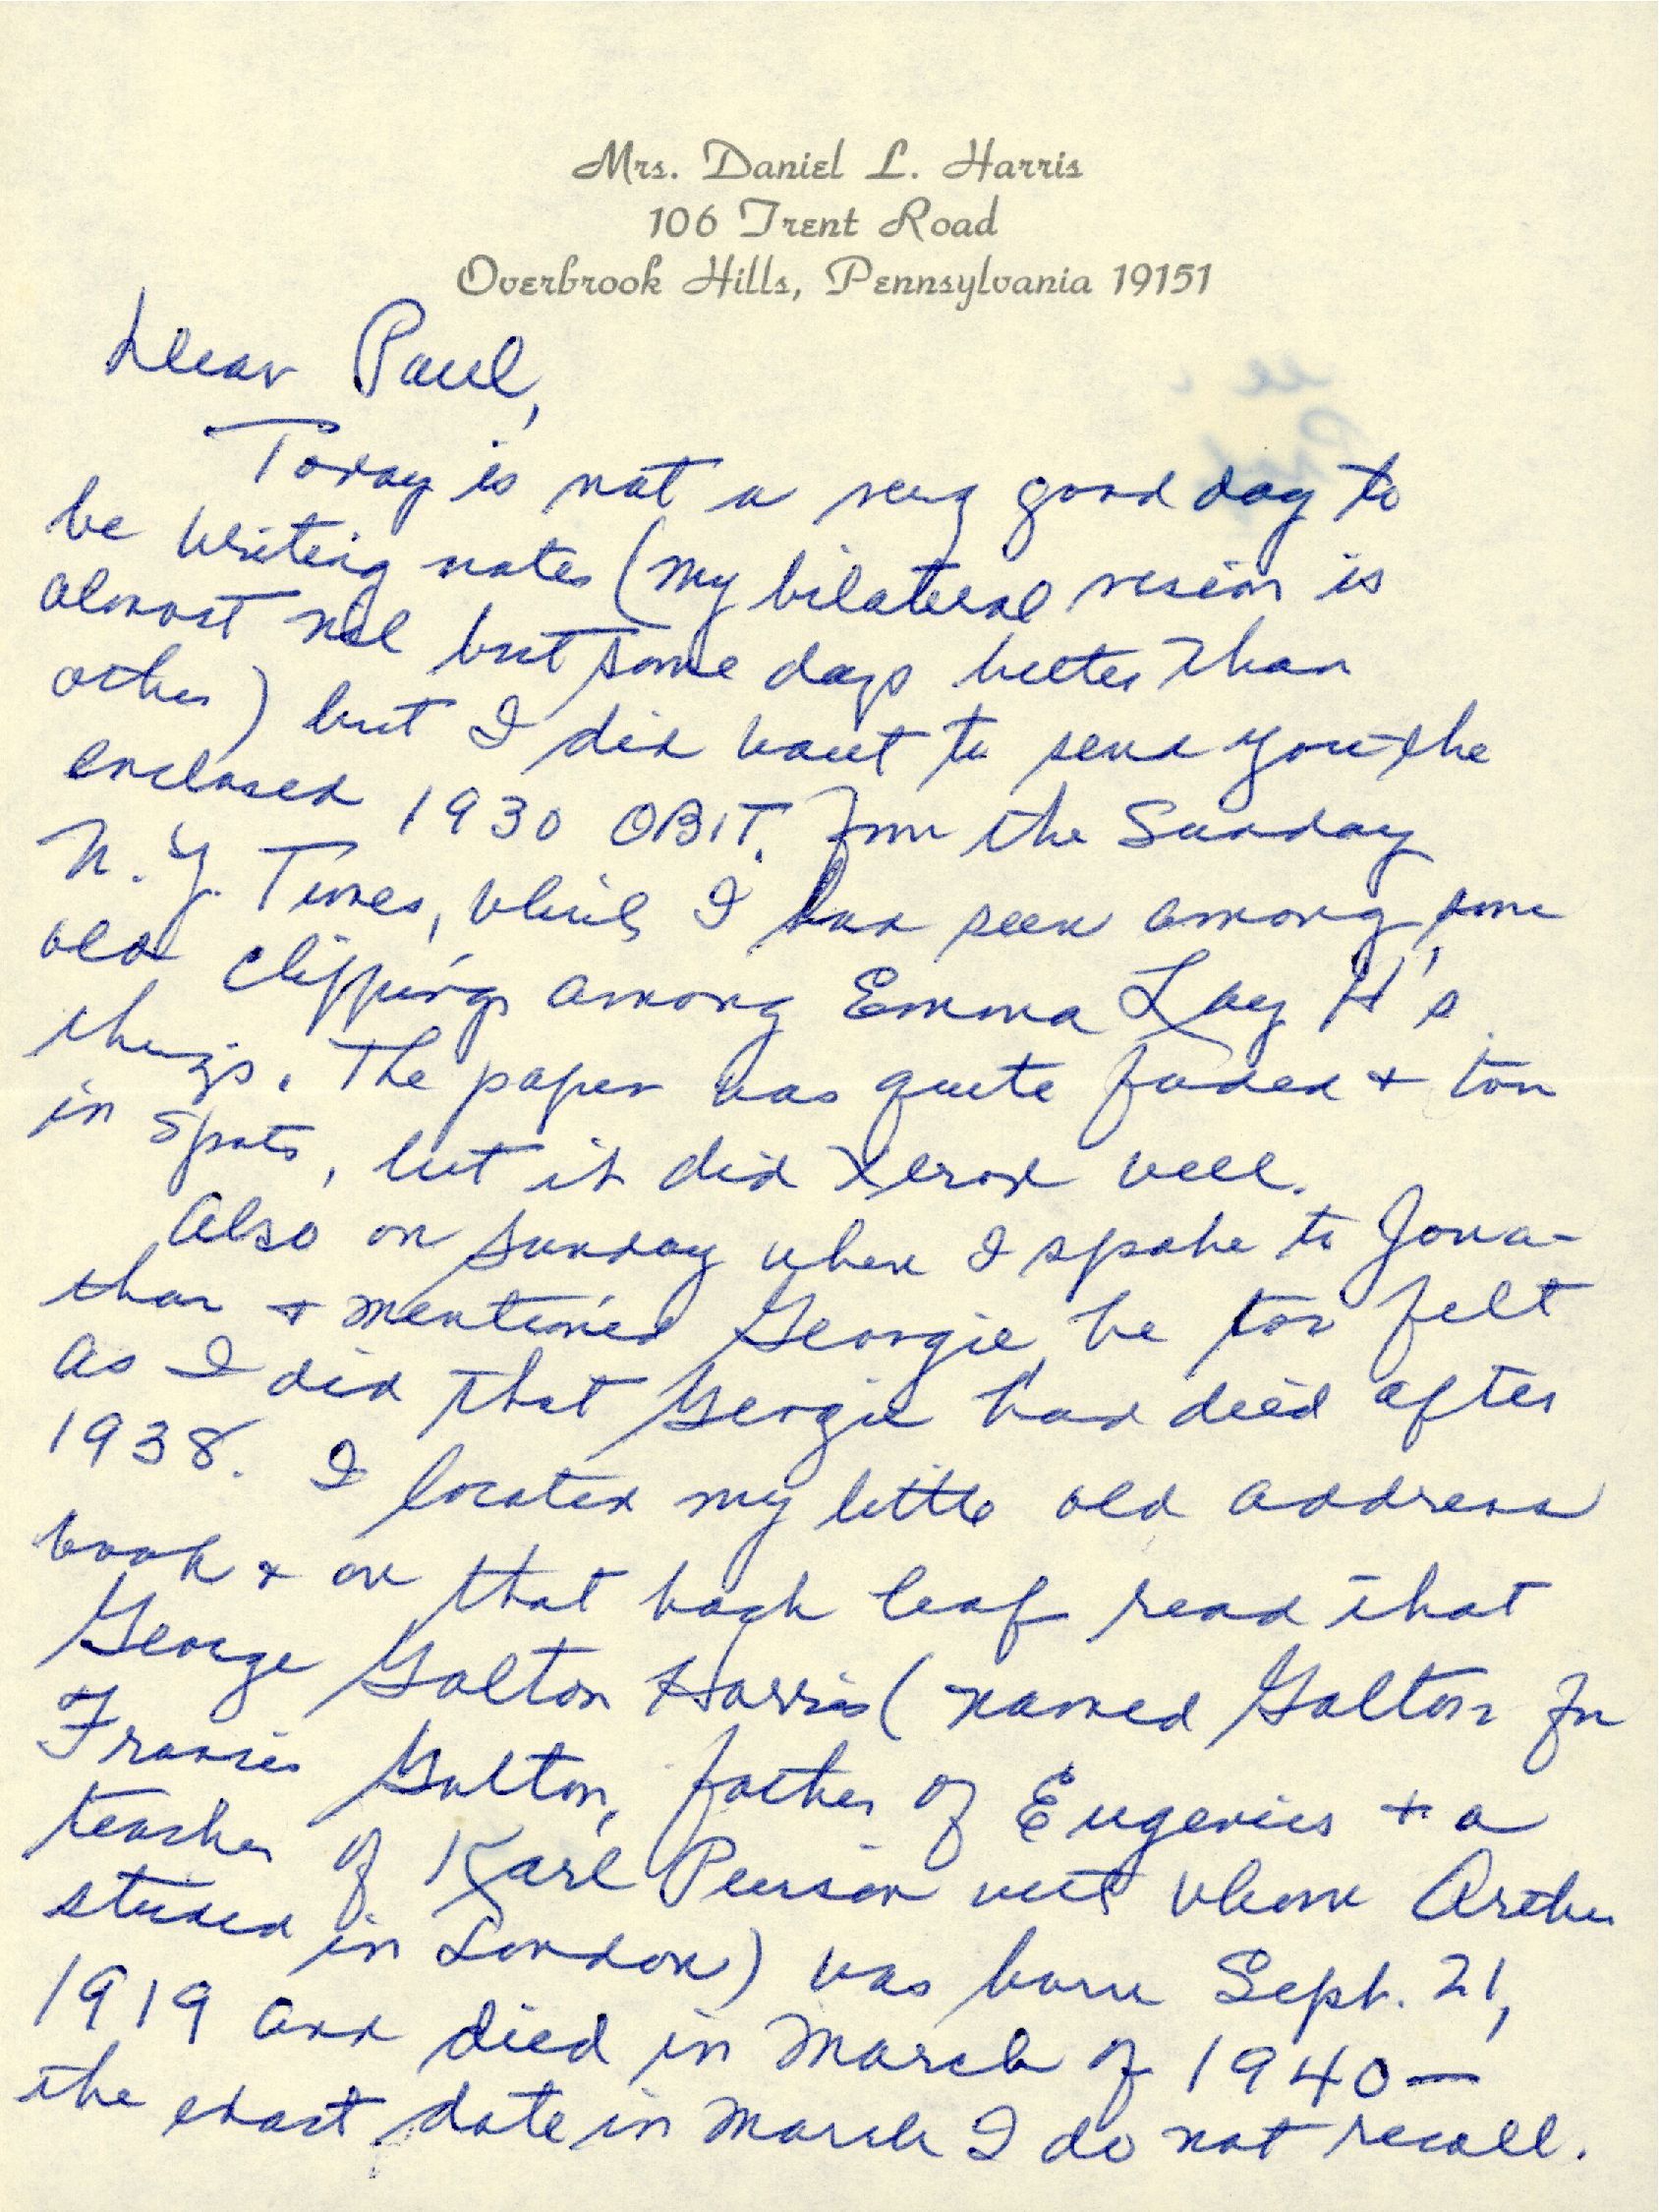 Mrs. Daniel L. Harris
106 Trent Road
Overbrook Hills, Pennsylvania 19151
Dear Paul,
Today is not a very good day to
be writing notes (my bilateral vision is
almost nil but some days better than
other) but I did want to send you the
enclosed 1930 OBIT. from the Sunday
N.Y. Times, which I had seen among some
old clippings among Emma Lay H's
things. The paper was quite faded & torn
in spots, but it did Xerox well.
Also on Sunday when I spoke to Jona-
than & mentioned Georgie, he too felt
as I did that Georgie had died after
1938. I located my little old address
book & on that back leaf read that
George Galton Harris (named Galton for
Francis Galton, father of Eugenics & a
teacher of Karl Pearson with whom Arthur
studied in London) was born Sept. 21,
1919 and died in March of 1940—
the exact date in March I do not recall.